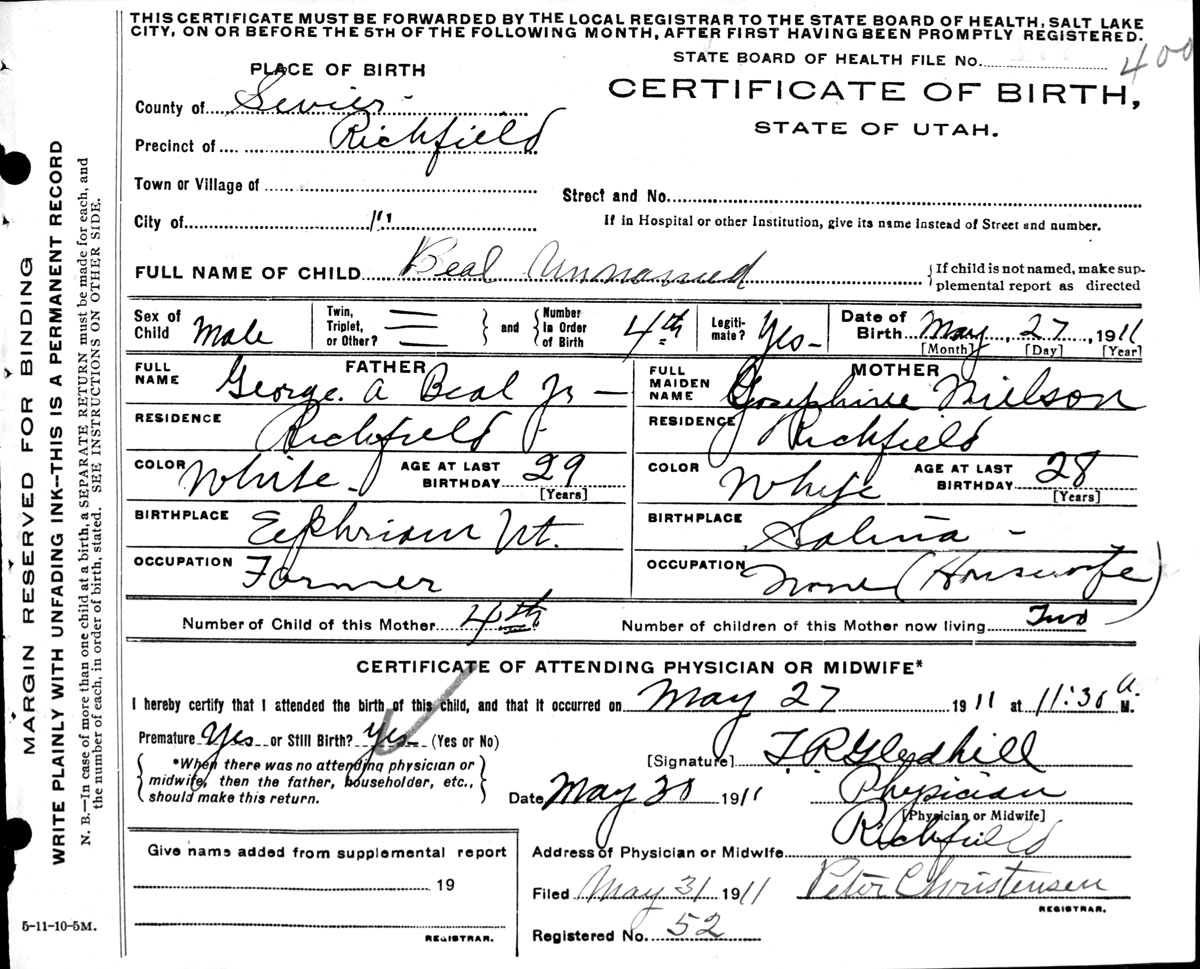 THIS CERTIFICATE MUST BE FORWARDED BY THE LOCAL REGISTRAR TO THE STATE BOARD OF HEALTH, SALT LAKE
CITY, ON OR BEFORE THE 5TH OF THE FOLLOWING MONTH, AFTER FIRST HAVING BEEN PROMPTLY REGISTERED.
STATE BOARD OF HEALTH FILE No. 400
PLACE OF BIRTH
CERTIFICATE OF BIRTH,
STATE OF UTAH.
County of Sevier
Precinct of Richfield
Town or Village of
Street and No.
City of "
If in Hospital or other Institution, give its name instead of Street and number.
FULL NAME OF CHILD Beal Unnamed {If child is not named, make sup-
plemental report as directed
Sex of Child Male
Twin, Triplet, or Other? and Number in Order of Birth 4th
Legiti-mate? Yes
Date of Birth May, 27, 1911
[Month] [Day] [Year]
FATHER
FULL NAME George. A Beal Jr
MOTHER
FULL MAIDEN NAME Josephine Nielson
RESIDENCE Richfield
RESIDENCE Richfield
COLOR White AGE AT LAST BIRTHDAY 29 [Years]
COLOR White AGE AT LAST BIRTHDAY 28 [Years]
BIRTHPLACE Eephriam Ut.
BIRTHPLACE Salina
OCCUPATION Farmer
OCCUPATION None (Housewife)
Number of Child of this Mother 4th
Number of children of this Mother now living Two
CERTIFICATE OF ATTENDING PHYSICIAN OR MIDWIFE*
I hereby certify that I attended the birth of this child, and that it occurred on May 27 1911 at 11:30 A. M.
Premature Yes or Still Birth? yes (Yes or No)
*When there was no attending physician or
midwife, then the father, householder, etc.,
should make this return.
[Signature] T. R Gledhill
Date May 30 1911
Physician
[Physician or Midwife]
Address of Physician or Midwife Richfield
Give name added from supplemental report
19
REGISTRAR.
Filed May 31 1911 Peter Christensen
REGISTRAR.
Registered No. 52
5-11-10-5M.
MARGIN RESERVED FOR BINDING
WRITE PLAINLY WITH UNFADING INK—THIS IS A PERMANENT RECORD
N. B.—In case of more than one child at a birth, a SEPARATE RETURN must be made for each, and
the number of each, in order of birth, stated. SEE INSTRUCTIONS ON OTHER SIDE.